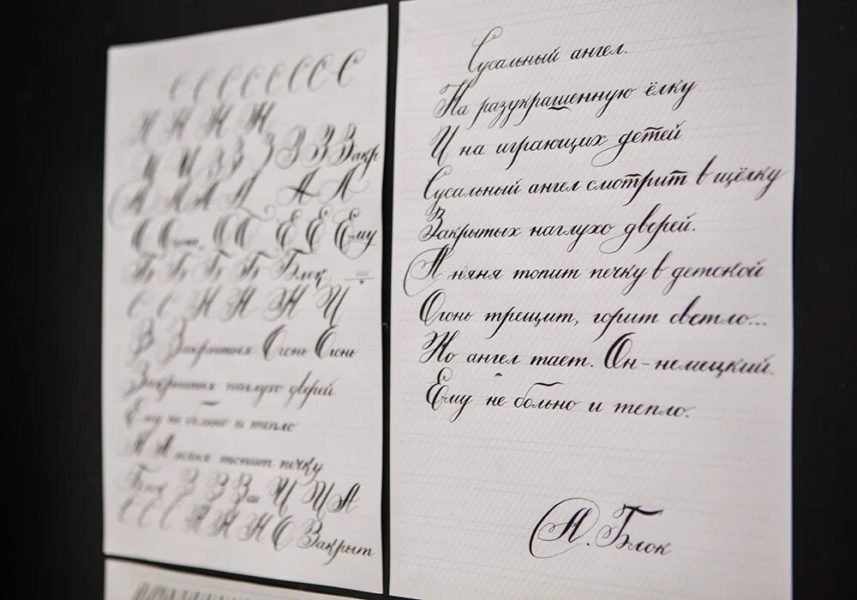 С С С С С С С
Н Н Н Н
И И З З З З З Закр
А А А А А А
О Огонь О О Е Е Ему
Б Б Б Б Блок
С С Н Н Н И
З Закрытых Огонь Огонь
Закрытых наглухо дверей
Ему не больно и тепло
А А няня топит печку
Блок З З За И И А
С С С Н Н Н О Закрыт
Сусальный ангел.
На разукрашенную ёлку
И на играющих детей
Сусальный ангел смотрит в щёлку
Закрытых наглухо дверей.
А няня топит печку в детской
Огонь трещит, горит светло...
Но ангел тает. Он-немецкий.
Ему не больно и тепло.
А. Блок